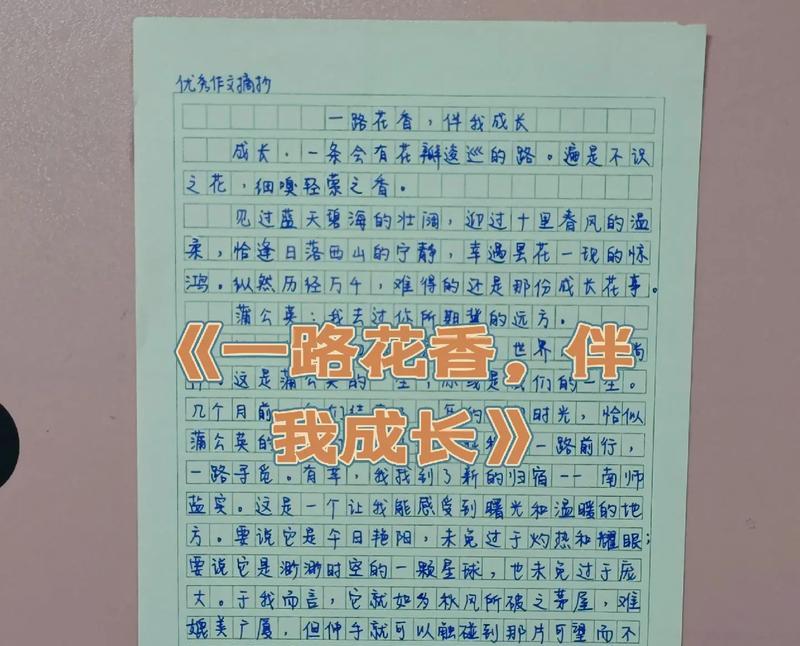 优秀作文摘抄
一路花香，伴我成长
成长，一条会有花瓣逡巡的路。遍是不识
之花，细嗅轻萦之香。
见过蓝天碧海的壮阔，迎过十里春风的温
柔，恰逢日落西山的宁静，幸遇昙花一现的惊
鸿。纵然历经万千，难得的还是那份成长花事。
蒲公英：我去过你所期冀的远方。
《一路花香，伴
我成长》
世界
这是蒲公英的一生，们的一生。
几个月前时光，恰似
蒲公英的一路前行，
一路寻觅。有幸，我找到了新的归宿——南师
盐实。这是一个让我能感受到曙光和温暖的地
方。要说它是午日艳阳，未免过于灼热和耀眼；
要说它是渺渺时空的一颗星球，也未免过于庞
大。于我而言，它就如为秋风所破之茅屋，难
媲美广厦，但伸手就可以触碰到那片可望而不